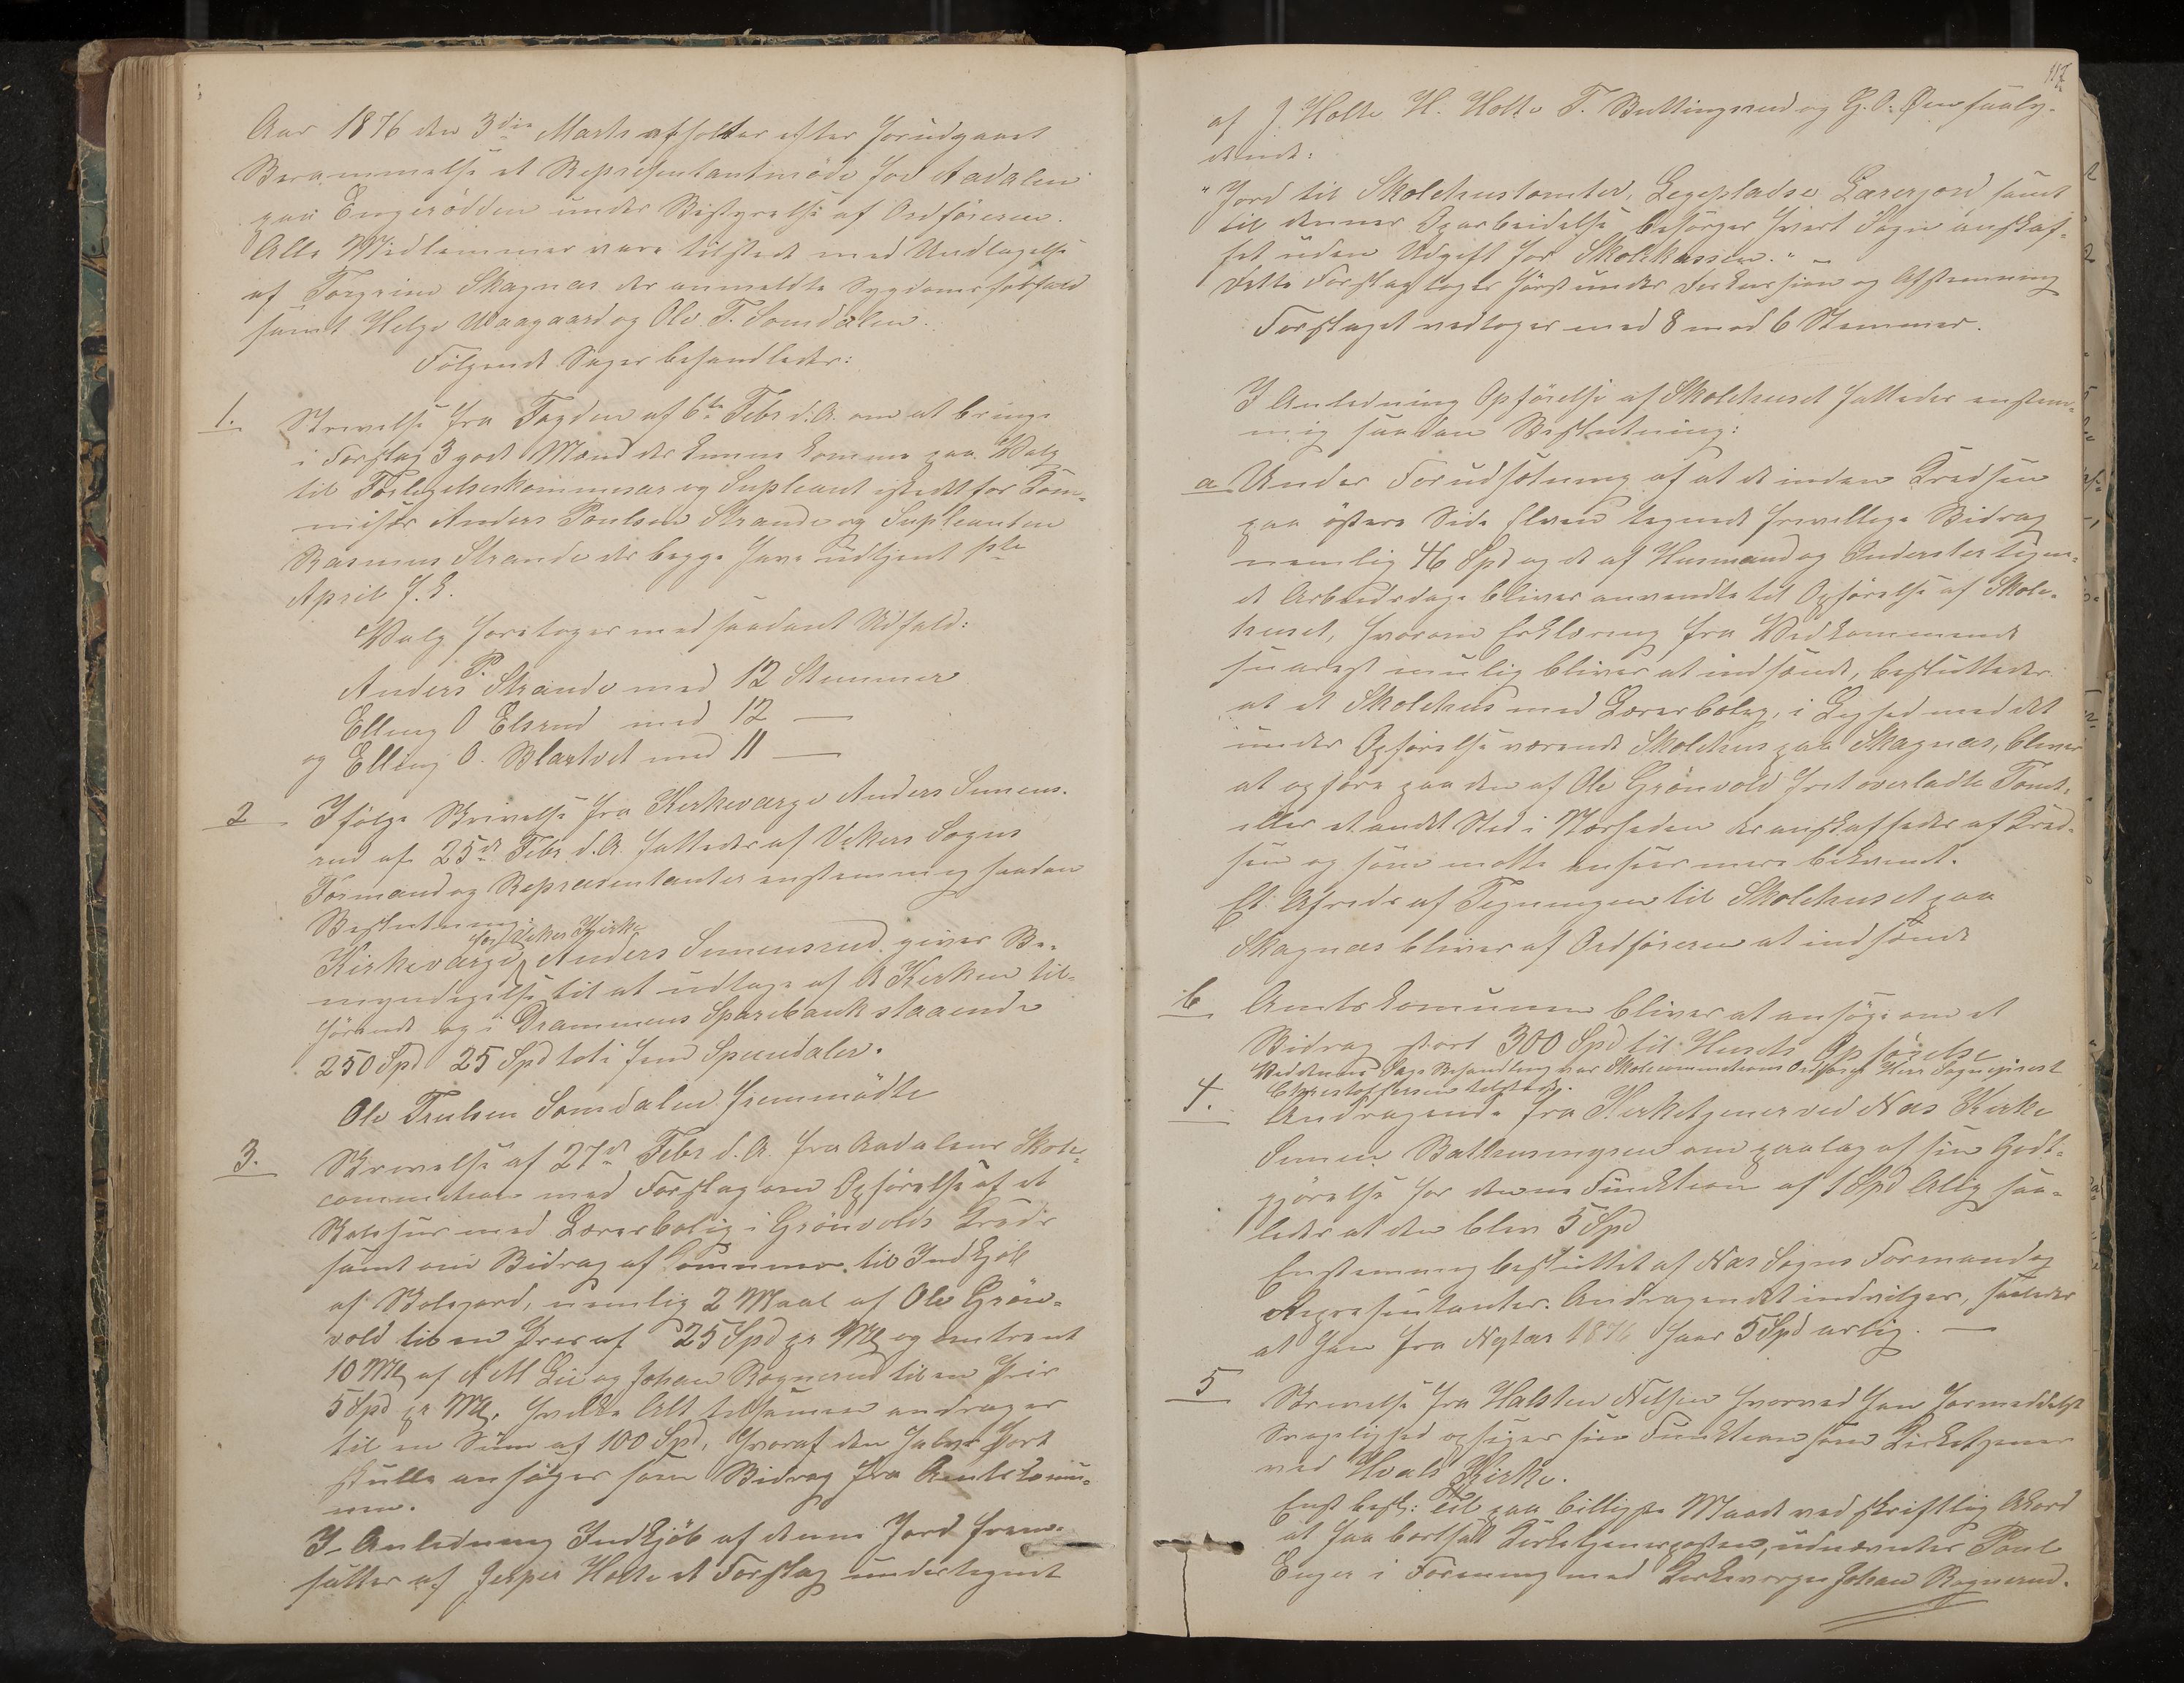 Aar 1876 den 3die Marts afholtes efter forudgaaet
Berammelse et Representantmøde for Aadalen
paa Engerodden under Bestyrelse af Ordføreren.
Alle Medlemmer vare tilstede med Undtagelse
af Torgrim Skagnæs der anmeldte Sygdomsforfald
samt Helge Waagaard og Ole T. Somdalen.
Følgende Sager behandledes:
1. Skrivelse fra Fogden af 6te Febr d.A. om at bringe
i Forslag 3 gode Mænd der kunne komme paa Valg
til Forligelseskommissær og Supleant istedet for Kom-
misær Anders Poulsen Strande og Supleanten
Rasmus Strande der begge have udtjent 1ste
April f. k.
Valg foretoges med saadant Udfald:
Anders P. Strande med 12 Stemmer
Elling O Elsrud med 12 —
og Elling O. Blaktvet med 11 —
2 Ifølge Skrivelse fra Kirkeværge Anders Semens-
rud af 25de Febr d.A. fattedes af Vikers Sogns
Formænd og Repræsentanter enstemmig saadan
Beslutning:
Kirkeværge for Viker Kirke Anders Semensrud giver Be-
myndigelse til at udtage af de Kirken til-
hørende og i Drammens Sparebank staaende
250 Spd 25 Spd toti fem Speciedaler.
Ole Trulsen Somdalen fremmødte
3. Skrivelse af 27de Febr d.A. fra Aadalens Skole-
commition med Forslag om Opførelse af et
Skolehus med Lærerbolig i Grønvolds Kreds
samt om Bidrag af Communen til Indkjøb
af Skolejord, nemlig 2 Maal af Ole Grøn-
vold til en Pris af 25 Spd pr Ml og omtrent
10 Ml af A M Lie og Johan Rognerud til en Pris
5 Spd pr Ml, hvilke Alt tilsamen andrager
til en Sum af 100 Spd, hvoraf den halve Part
skulle ansøges som Bidrag fra Amtskomu-
nen.
I Anledning Indkjøb af denne Jord frem-
sattes af Jesper Holte et Forslag undertegnet
117
af J. Holte H. Holte T. Buttingsrud og G. O. Øen saaly-
dende:
"Jord til Skolehustomter, Legepladse Lærerjord samt
til dennes Oparbeidelse besørger hvert Sogn anskaf-
fet uden Udgift for Skolekassen." –
Dette Forslag toges først under Diskussion og Afstemning
Forslaget vedtoges med 8 mod 6 Stemmer.
I Anledning Opførelse af Skolehuset fattedes enstem-
mig saadan Beslutning:
a Under Forudsætning af at de inden Kredsen
paa østere Side Elven tegnede frivillige Bidrag
nemlig 46 Spd og de af Husmænd og Inderster tegne-
de Arbeidsdage bliver anvendte til Opførelse af Skole-
huset, hvorom Erklæring fra Vedkommende
snarest mulig bliver at indsende, besluttedes
at et Skolehus med Lærerbolig, i Lighed med det
under Opførelse værende Skolehus paa Skagnæs, bliver
at opføre paa den af Ole Grønvold frit overladte Tomt,
eller et andet Sted i Nærheden der anskaffedes af Kred-
sen og som maatte ansees mere bekvemt.
Et Afrids af Tegningen til Skolehuset paa
Skagnæs bliver af Ordføreren at indsende
b Amtskomunen bliver at ansøge om et
Bidrag stort 300 Spd til Husets Opførelse
Ved denne Sags Behandling var Skolecommitions Ordfører Herr Sogneprest
Christoffersen tilstede.
4. Andragende fra Kirketjener ved Næs Kirke
Semen Bakkusmyren om paalag af sin Godt-
gjørelse for denne Funktion af 1 Spd Alig saa-
ledes at den blev 5 Spd
Enstemmig besluttet af Næs Sogns Formænd og
Representanter. Andragendet indvilges, saaledes
at han fra Nytaar 1876 faar 5 Spd aarlig. —
5 Skrivelse fra Halsten Nilsen hvorved han formedelst
Svagelighed opsiger sin Funktion som Kirketjener
ved Hvals Kirke.
Enst besl: Til paa billigste Maade ved skriftlig Akord
at faa bortsatt Kirketjenerposten, udnævntes Poul
Enger i Forening med Kirkeværge Johan Rognerud.